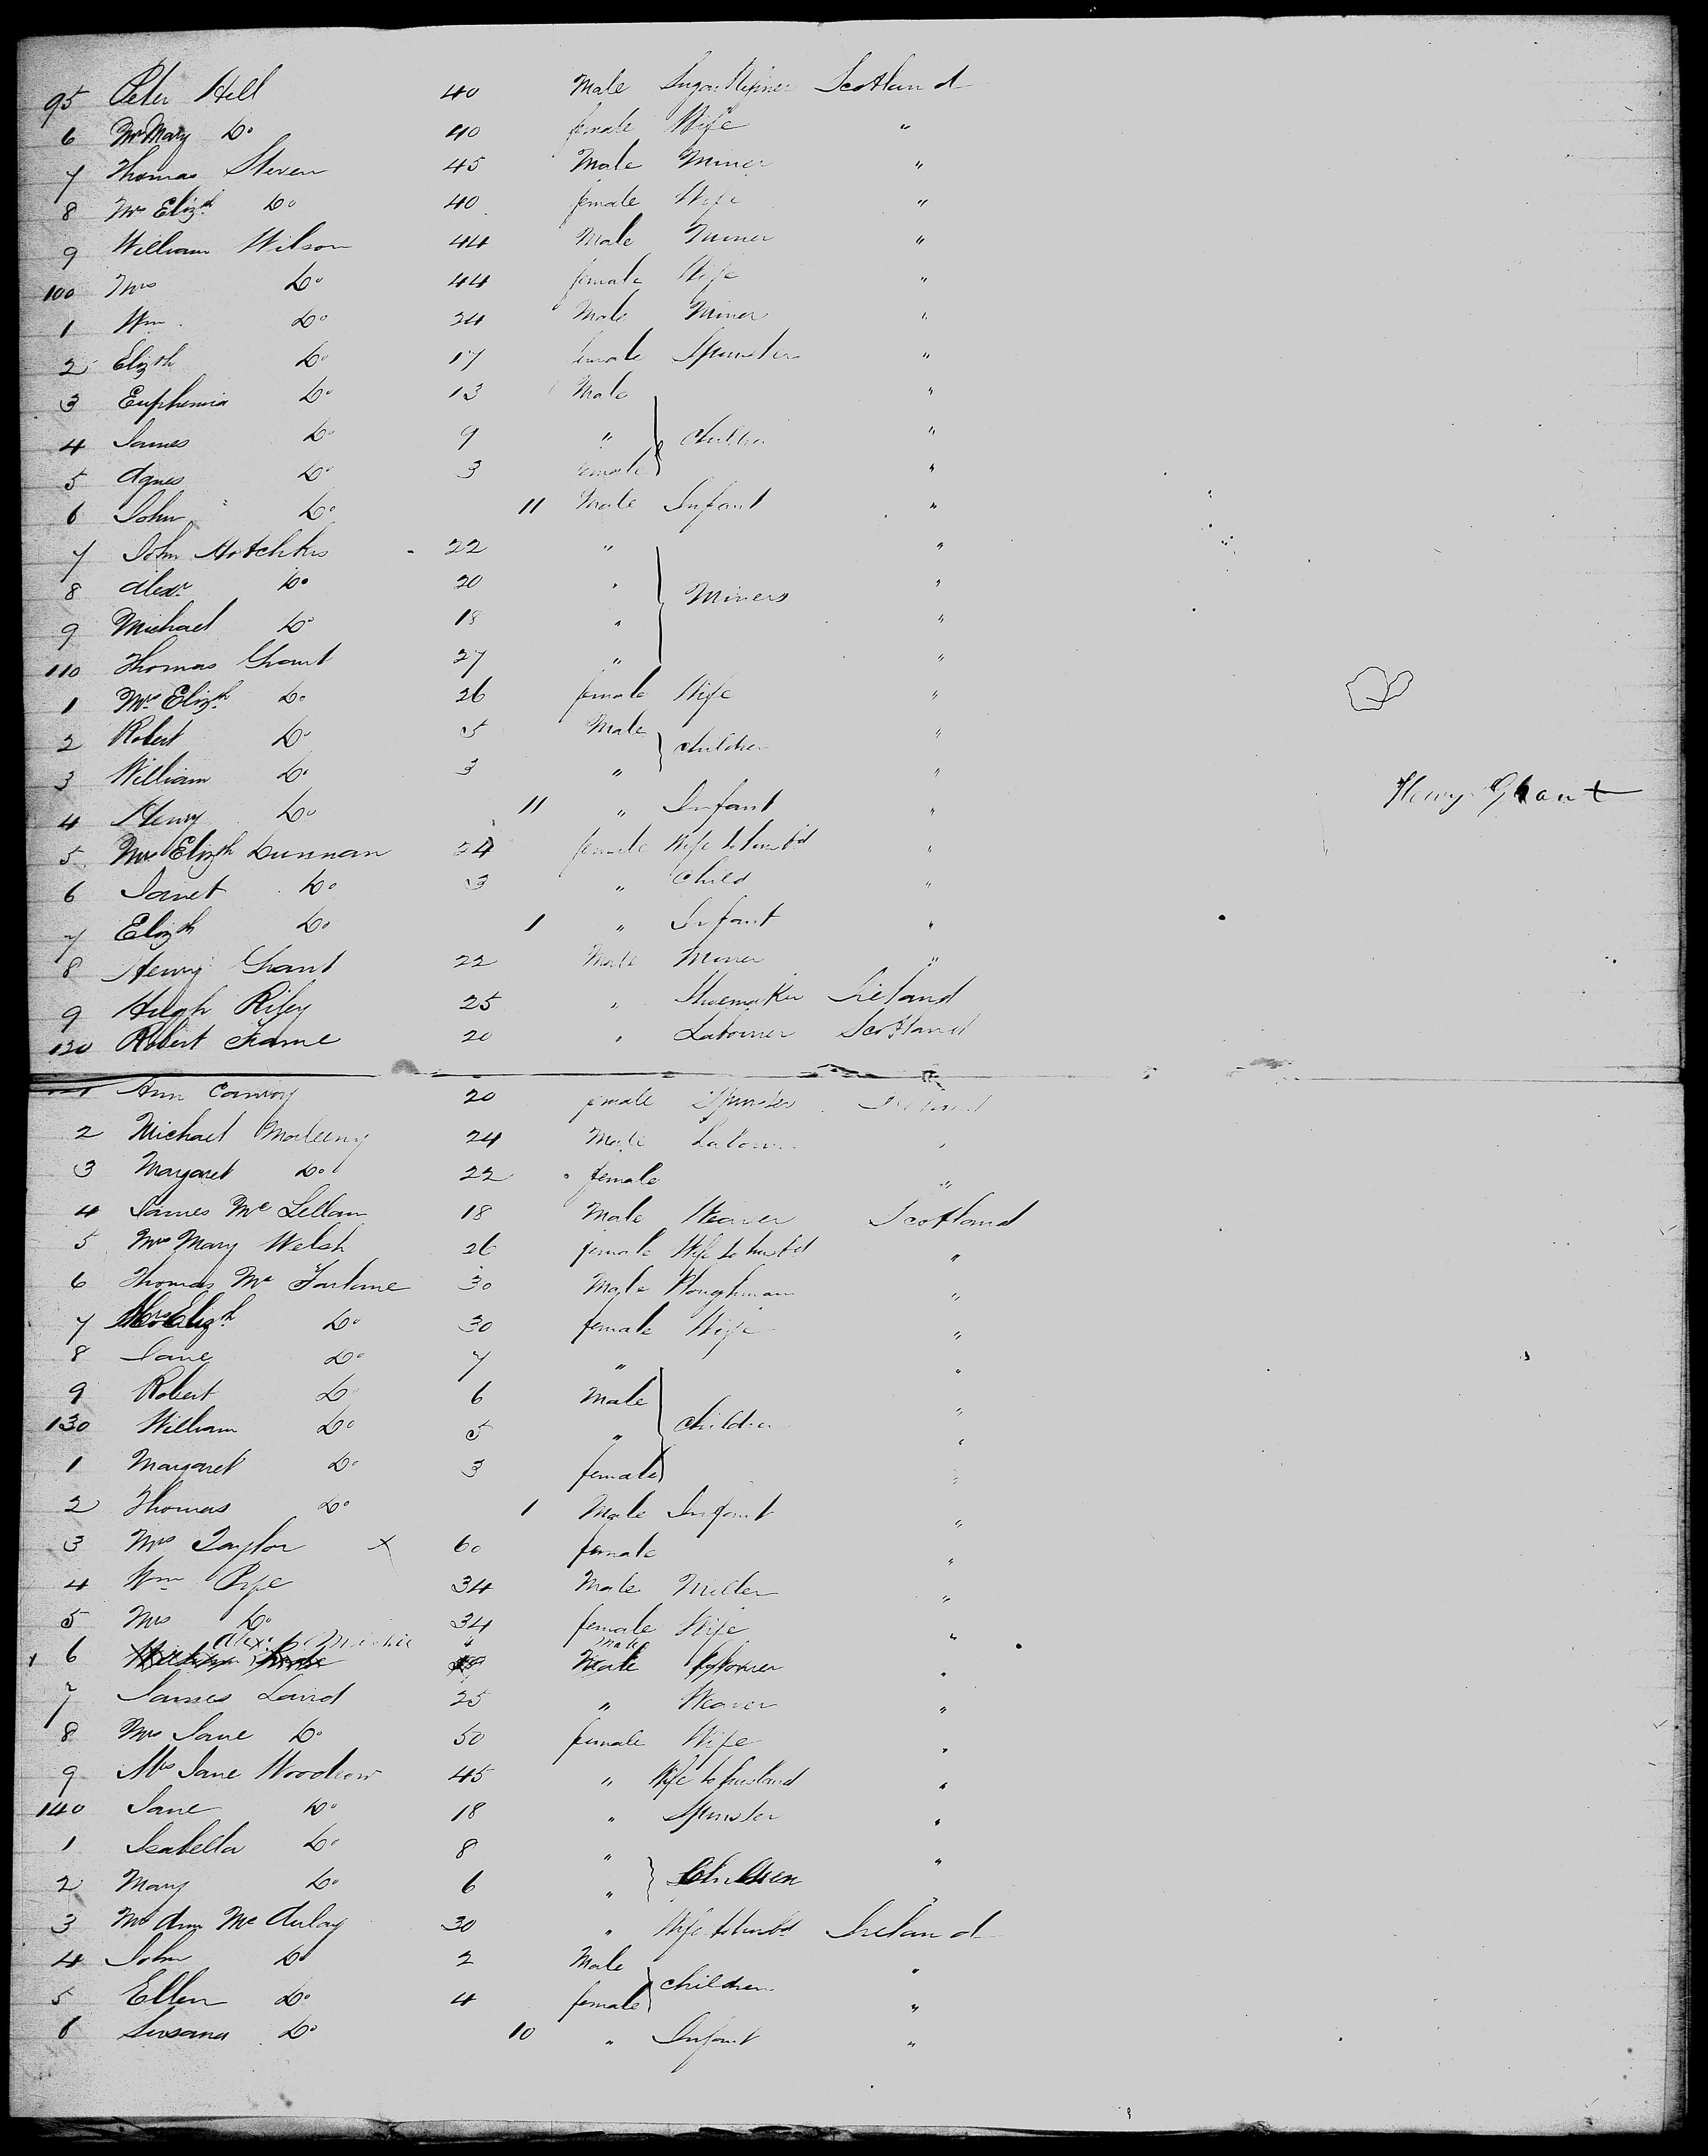 95 Peter Hill 40 Male Sugar Refiner Scotland
6 Mrs Mary Do 40 female Wife "
7 Thomas Steven 45 Male Miner "
8 Mrs Elizh Do 40 female Wife "
9 William Wilson 44 Male Miner "
100 Mrs Do 44 female Wife "
1 Wm Do 24 Male Miner "
2 Elizth Do 17 female Spinster "
3 Euphemia Do 13 Male "
4 James Do 9 " Children "
5 Agnes Do 3 female "
6 John Do 11 Male Infant "
7 John Hotchkis 22 " "
8 Alexr Do 20 " Miners "
9 Michael Do 18 " "
110 Thomas Grant 27 " "
1 Mrs Elizh Do 26 female Wife "
2 Robert Do 5 Male children "
3 William Do 3 " "
4 Henry Do 11 " Infant " Henry Grant
5 Mrs Elizth Dunnan 24 female Wife to husbd "
6 Janet Do 3 " Child "
7 Elizth Do 1 " Infant "
8 Henry Grant 22 Male Miner "
9 Hugh Rify 25 " Shoemaker Ireland
120 Robert Frame 20 " Labourer Scotland
Ann Conroy 20 female Spinster Ireland
2 Michael 24 Male Labour "
3 Margaret Do 22 female "
4 James Mc Lellan 18 Male Weaver Scotland
5 Mrs Mary Welsh 26 female Wife to husbd "
6 Thomas Mc Farlane 30 Male Ploughman "
7 Mrs Elizh Do 30 female Wife "
8 Jane Do 7 " "
9 Robert Do 6 Male "
130 William Do 5 " Children "
1 Margaret Do 3 female "
2 Thomas Do 1 Male Infant "
3 Mrs Taylor x 60 female "
4 Wm Pype 34 Male Miller "
5 Mrs Do 34 female Wife "
6 Alexr Male Labourer "
7 James Laird 25 " Weaver "
8 Mrs Jane Do 50 female Wife "
9 Mrs Jane Woodrow 45 " Wife to husband "
140 Jane Do 18 " Spinster "
1 Isabella Do 8 " "
2 Mary Do 6 " Children "
3 Mrs Ann Mc Aulay 30 " Wife to husbd Ireland
4 John Do 2 Male "
5 Ellen Do 4 female children "
6 Susana Do 10 " Infant "